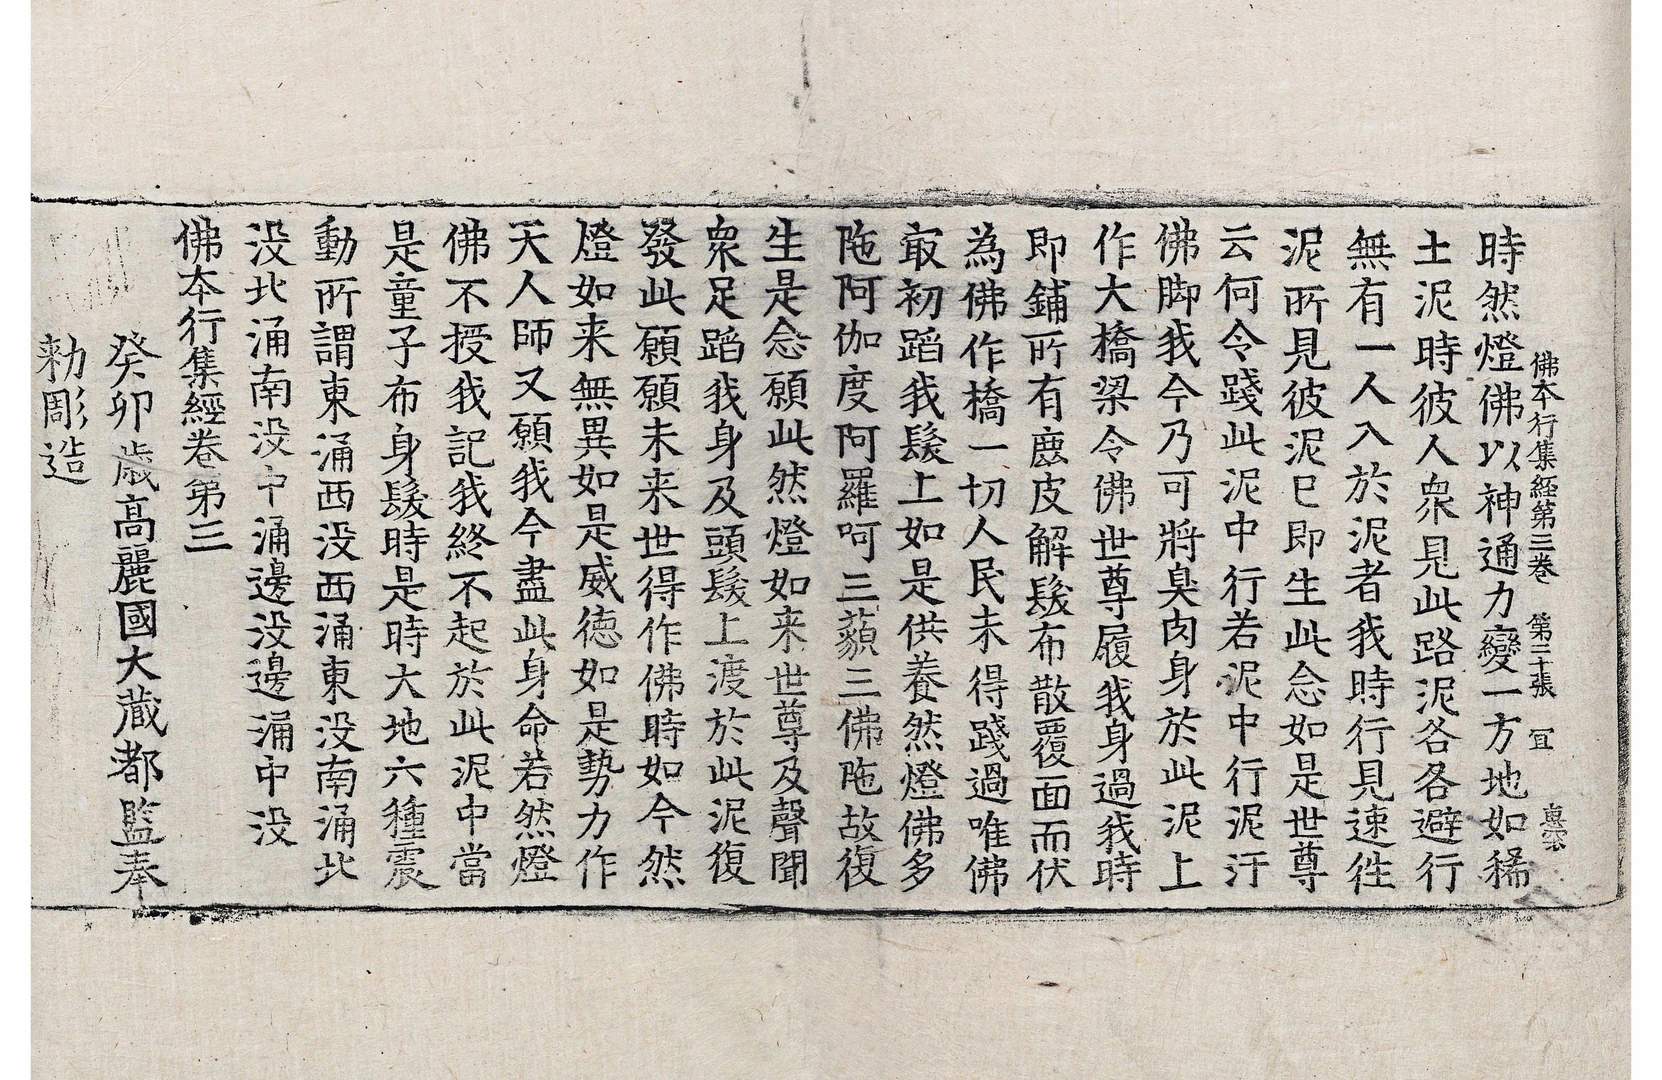 佛本行集經第三卷 第二十張 宜
時然燈佛以神通力變一方地如稀
土泥時彼人衆見此路泥各各避行
無有一人入於泥者我時行見速徃
泥所見彼泥巳即生此念如是世尊
云何令踐此泥中行若泥中行泥汙
佛脚我今乃可將臭肉身於此泥上
作大橋梁令佛世尊履我身過我時
即鋪所有鹿皮解髮布散覆面而伏
為佛作橋一切人民未得踐過唯佛
㝡初蹈我髮上如是供養然燈佛多
陁阿伽度阿羅呵三藐三佛陁故復
生是念願此然燈如来世尊及聲聞
衆足蹈我身及頭髮上渡於此泥復
發此願願未来世得作佛時如今然
燈如来無異如是威德如是勢力作
天人師又願我今盡此身命若然燈
佛不授我記我終不起於此泥中當
是童子布身髮時是時大地六種震
動所謂東涌西没西涌東没南涌北
没北涌南没中涌邊没邊涌中没
佛本行集經卷第三
癸卯歳高麗國大藏都監奉
勅彫造